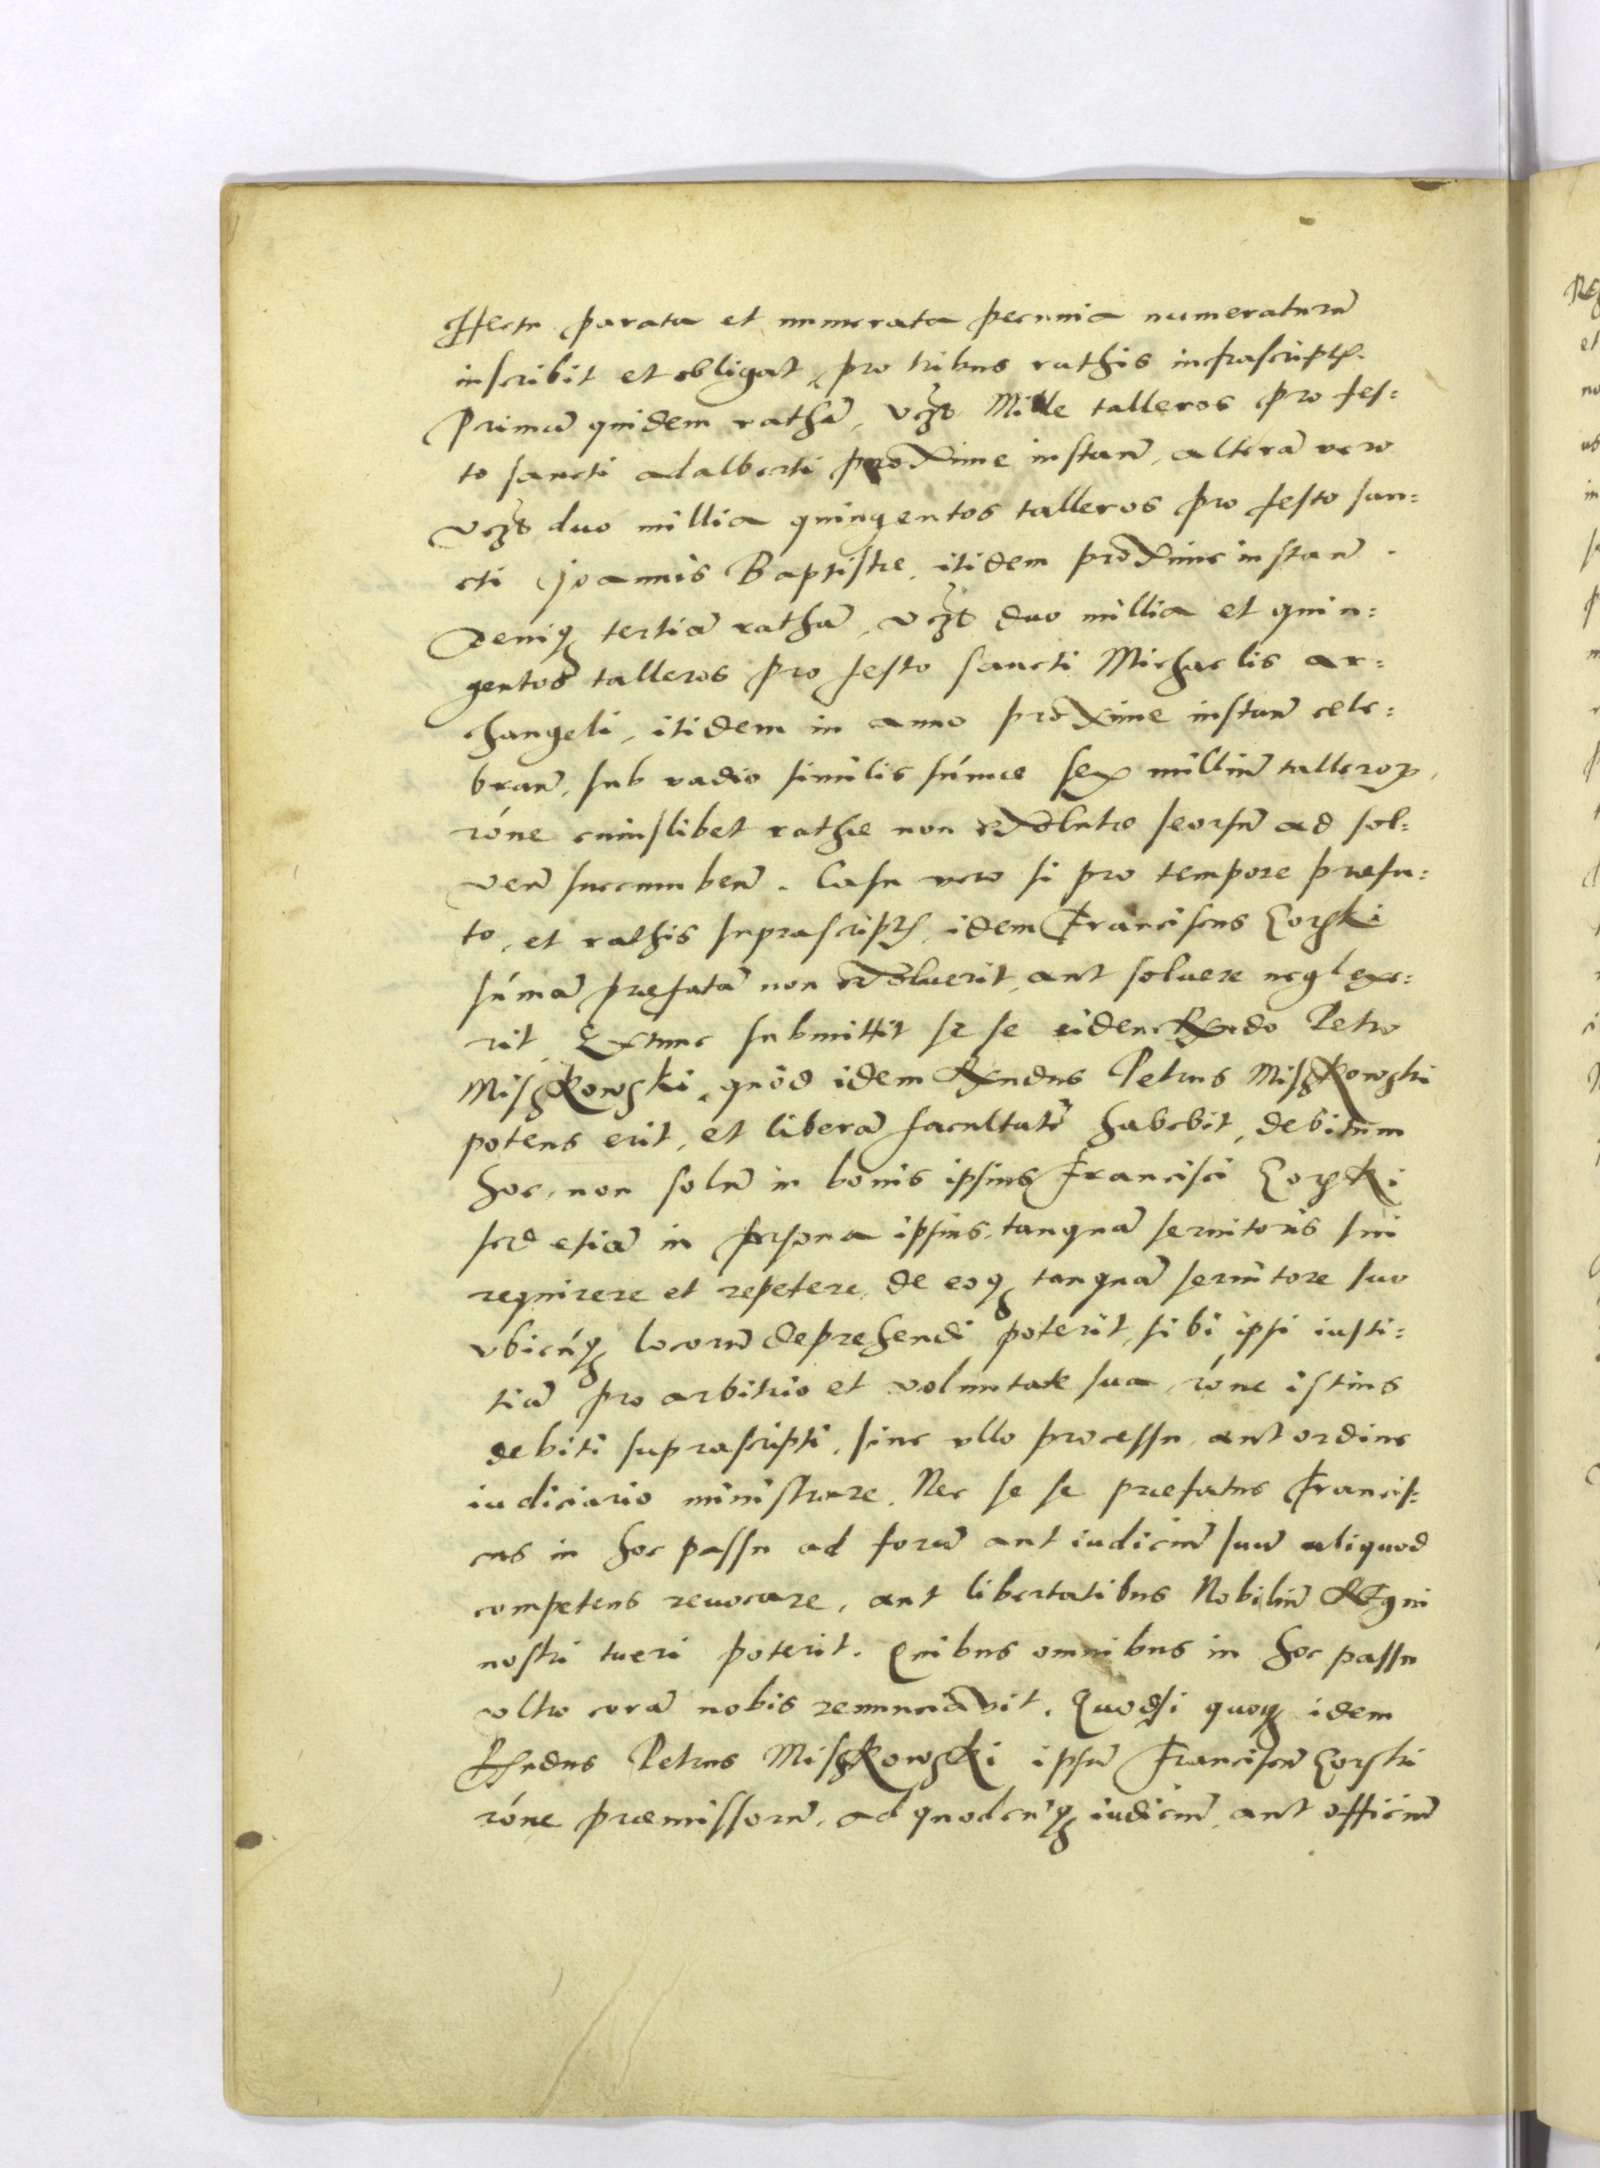 ffectu parata et numerata pecunia numeraturū
inscribit et obligat, pro tribus rathis infrascriptꝭ.
Primā quidem rathā, vcꝫt Mille talleros pro fes=
to sancti adalberti proxime instanꝭ, alterā vero
vcꝫt duo millia quingentos talleros pro festo san=
cti Joannis Baptistæ, itidem proxime instanꝭ.
Deniqꝫ tertiā rathā, vcꝫt duo millia et quin=
gentos talleros pro festo sancti Michaelis ar=
changeli, itidem in anno proxime instanꝭ cele=
branꝭ, sub vadio similis sūmæ sex milliū talleroꝝ,
rōne cuiuslibet rathæ non exolutæ seorsū ad sol=
venꝭ succumbenꝭ. Casu vero si pro tempore præfa=
to, et rathis suprascriptꝭ, idem Franciscus Zorski
sūmā præfatā non exoluerit, aut soluere neglexe=
rit Extunc submittit se se eidem Rndo Petro
Miszkowski, quòd idem Rndus Petrus Miszkowski
potens erit, et liberā facultatē habebit, debitum
hoc, non solū in bonis ipsius Francisci Zorski
sed etiā in persona ipsius, tanquā seruitoris sui
requirere et repetere, de eoqꝫ tanquā seruitore suo
vbicūqꝫ locorū deprehendi poterit, sibi ipsi iusti=
tiā pro arbitrio et voluntate sua, rōne istius
debiti suprascripti, sine ullo processu aut ordine
iudiciario ministrare. Nec se se præfatus Francis=
cus in hoc passu ad forū aut iudiciū suū aliquod
competens reuocare, aut libertatibus Nobiliū Regni
nostri tueri poterit. Quibus omnibus in hoc passu
vltro corā nobis renunciavit. Quodsi quoqꝫ idem
Rndus Petrus Miszkowski ipsū Franciscū Zorski
rōne præmissorū, ad quodcūqꝫ iudiciū, aut officiū